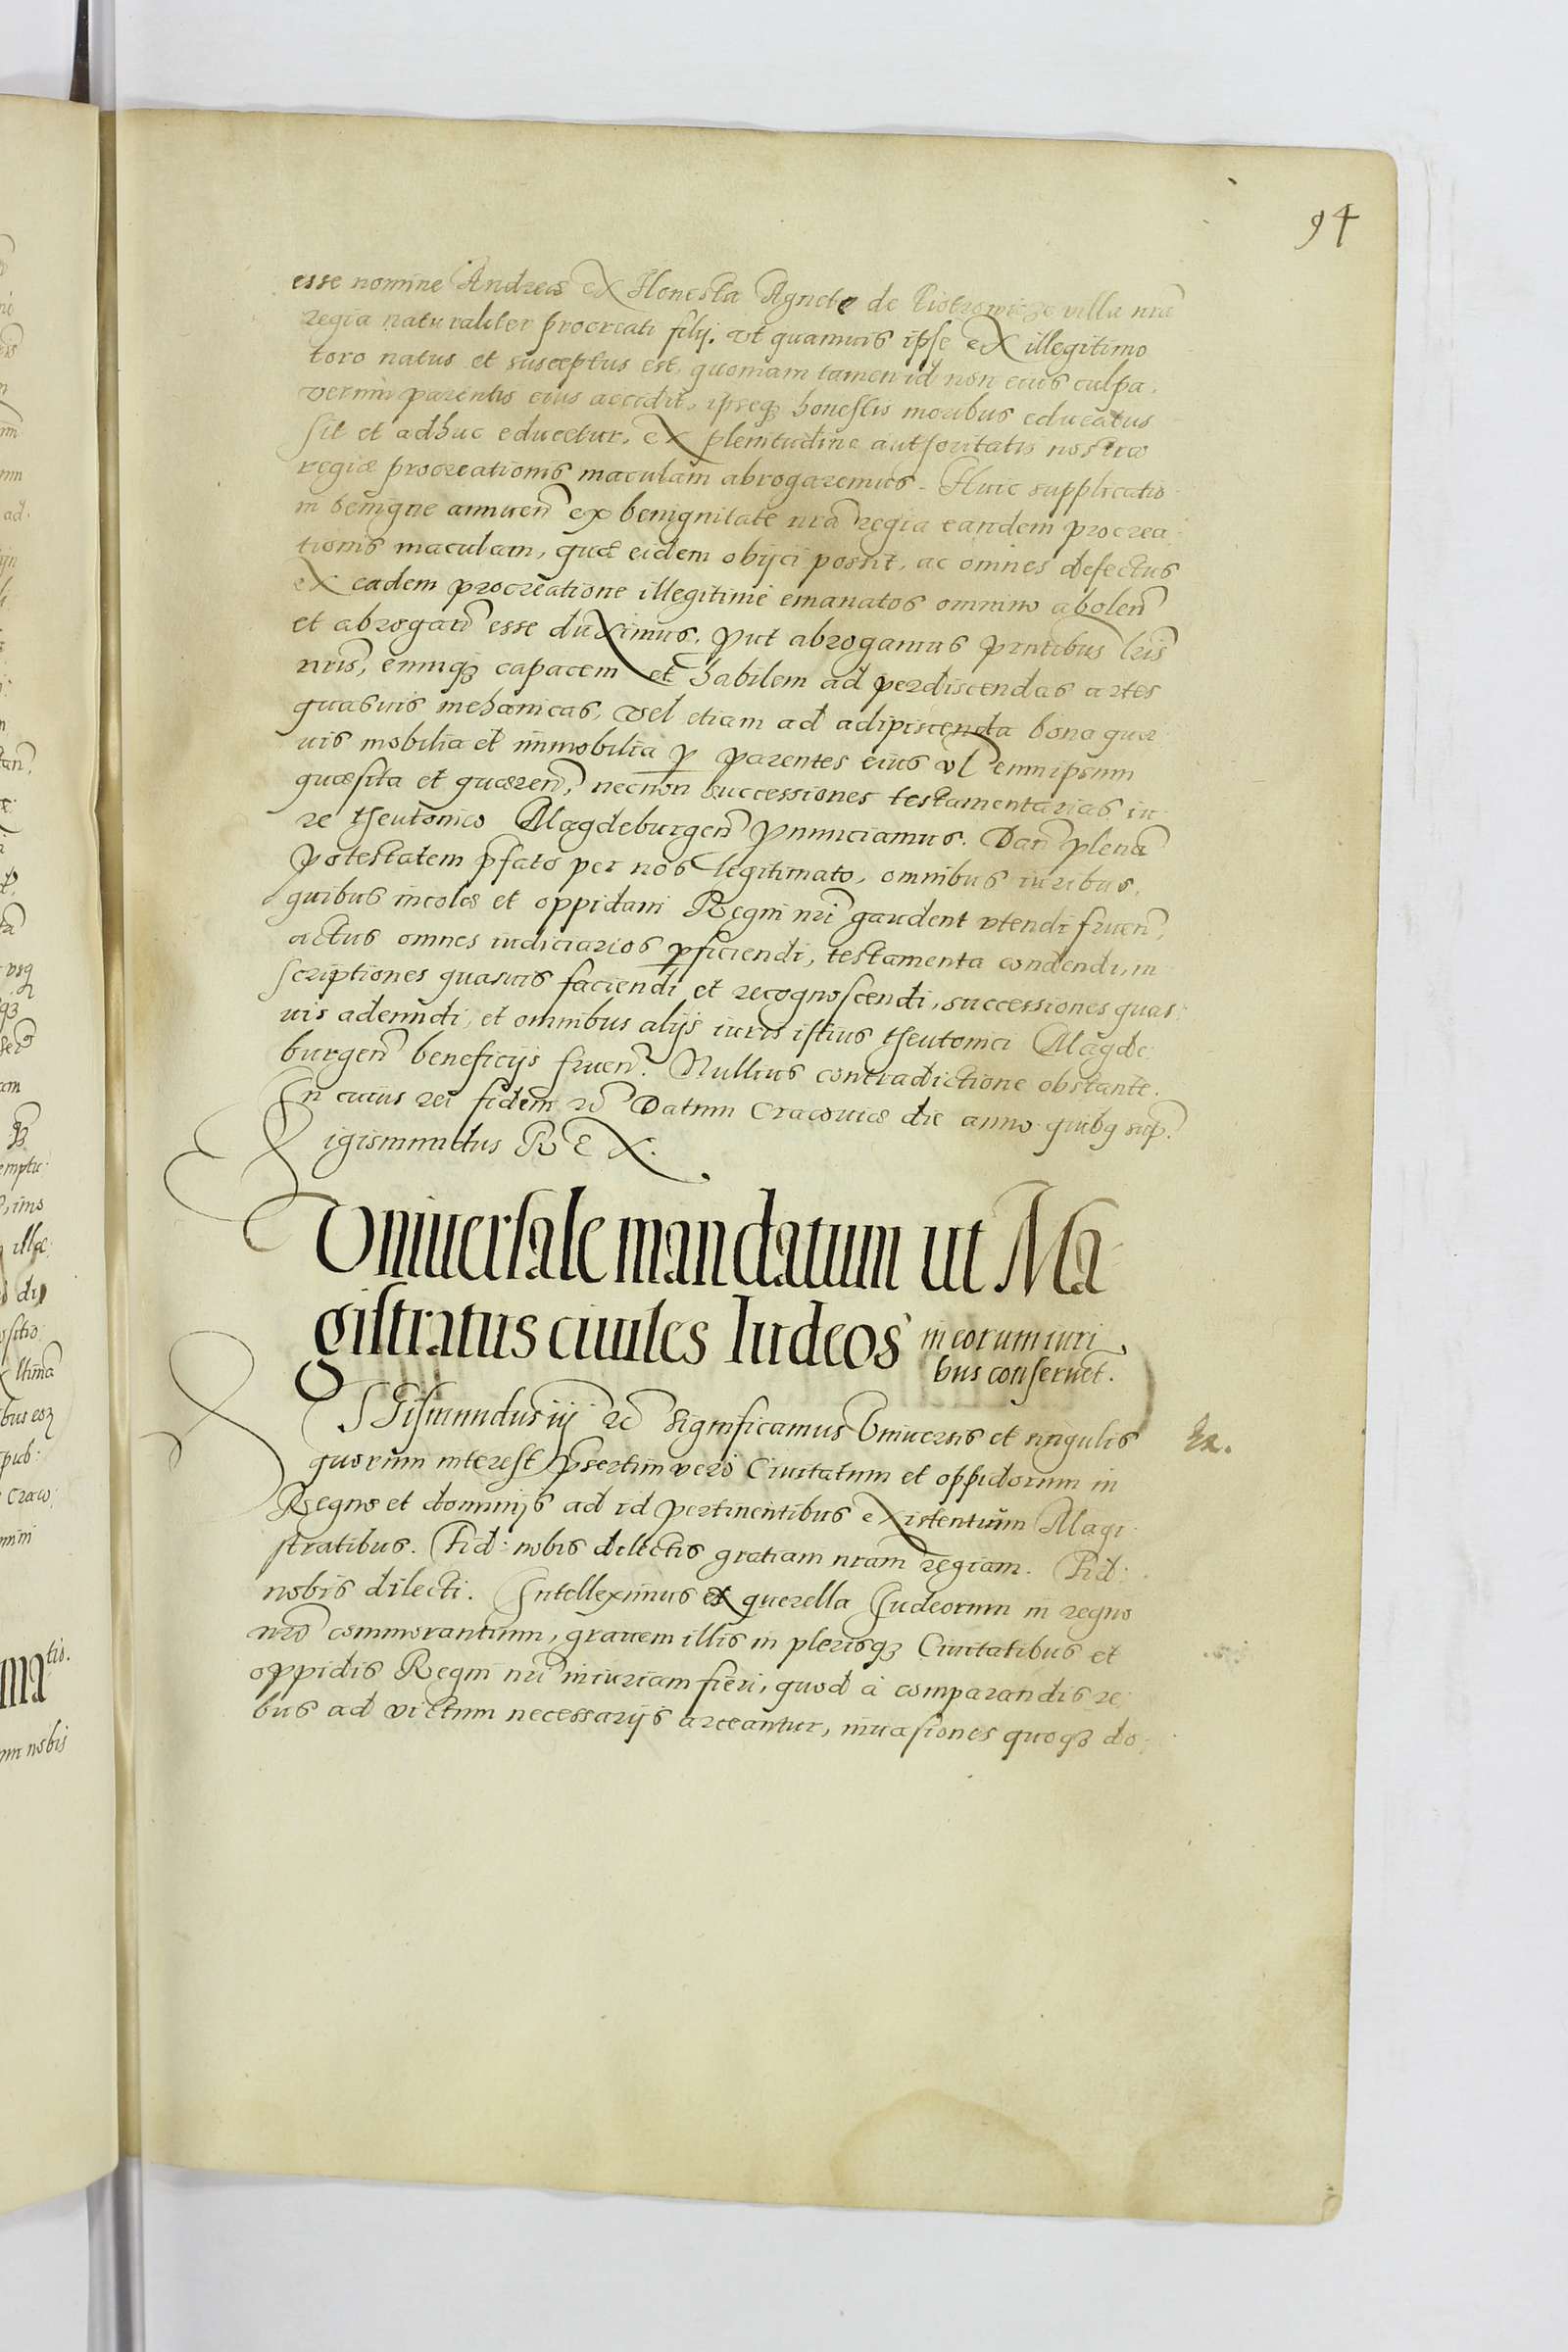 94
esse nomine Andreæ ex Honesta Agnete de Piotrowicze villa nrã
regia naturaliter procreati filij. Vt quamuis ipse ex illegitimo
toro natus et susceptus est, quoniam tamen id non eius culpa,
verum parentis eius accidit, ipseq3 honestis moribus educatus
sit et adhuc educetur, ex plenitudine authoritatis nostræ
regiæ procreationis maculam abrogaremus. Huic supplicatio
ni benigne annuen̄ ex benignitate nrã regia eandem procrea
tionis maculam, quæ eidem obijci possit, ac omnes defectus
ex eadem procreatione illegitime emanatos omnino abolen̄
et abrogan̄ esse duximus, put abrogamus pntibus lris̄
nris̄, eumq3 capacem et habilem ad perdiscendas artes
quasuis mehanicas, vel etiam ad adipiscenda bona quæ
uis mobilia et immobilia p parentes eius vl eumipsum
quæsita et quæren̄, necnon successiones testamentarias iu
re theutonico Magdeburgen̄ pnunciamus. Dan̄ plenā
potestatem pfato per nos legitimato, omnibus iuribus,
quibus incolæ et oppidani Regni nri gaudent vtendi fruen̄,
actus omnes iudiciarios pficiendi, testamenta condendi, in
scriptiones quasuis faciendi et recognoscendi, successiones quas
uis adeundi, et omnibus alijs iuris istius theutonici Magde
burgen̄ beneficijs fruen̄. Nullius contradictione obstante.
In cuius rei fidem rc̄ Datum Cracouiæ die anno quibq sup̄.
Sigismundus REX.
Vniuersale mandatum ut Ma
gistratus ciuiles Iudeos in eorum iuri
bus conseruet.
SIGismundus iij rc̄ Significamus Vniuersis et singulis
quorum interest psertim vero Ciuitatum et oppidorum in
Regno et dominijs ad id pertinentibus existentium Magi
stratibus. Fid: nobis dilectis gratiam nram regiam. Fid:
nobis dilecti. Intelleximus ex querella Iudeorum in regno
nrõ commorantium, grauem illis in plerisq3 Ciuitatibus et
oppidis Regni nri iniuriam fieri, quod à comparandis re
bus ad victum necessarijs arceantur, inuasiones quoq3 do